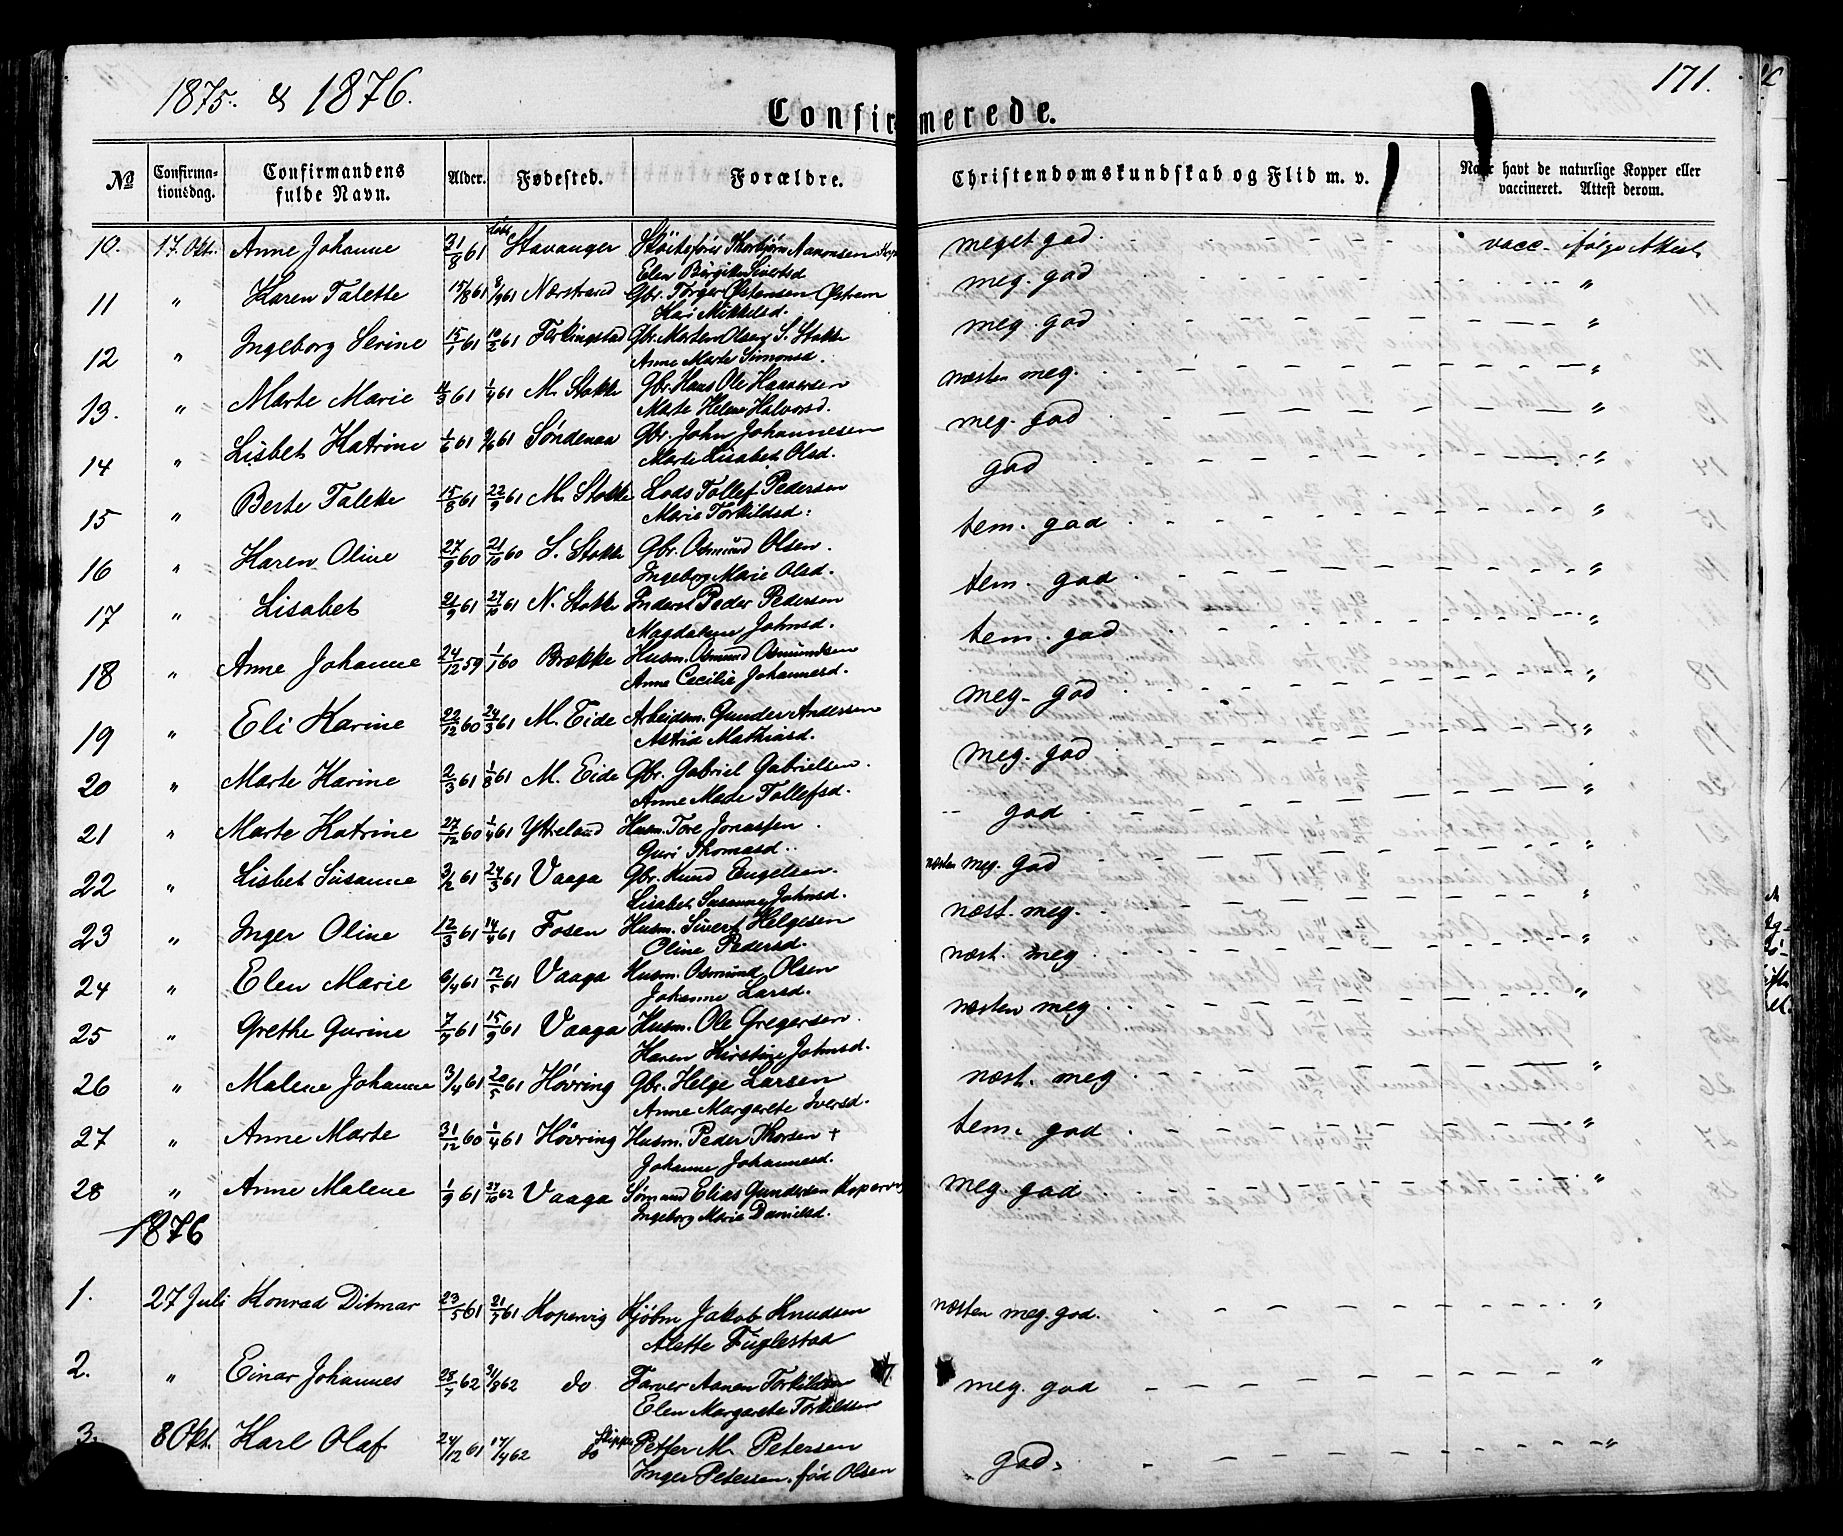 1875. & 1876.
171.
Confirmerede.
No
Confirma-
tionsdag.
Confirmandens
fulde Navn.
Alder.
Fødested.
Forældre.
Christendomskundskab og Flid m. v.
Naar havt de naturlige Kopper eller
vaccineret. Attest derom.
10. 17. Okt. Anne Johanne 31/8 61 Stavanger Thorbjørn Aanonsen meget god. vacc. følge Attest
Elen Birgitte Sivertsd.
11 " Karen Talette 15/8 61 8/9 61 Nærstrand Gbr. Torger Østensen Østrem meg. god "
Kari Mikkelsd.
12 " Ingeborg Serine 15/1 61 10/2 61 Ferkingstad Gbr. Morten Olsen S. Stokke meg. god "
Anne Marte Simonsd.
13. " Marte Marie 11/3 61 1/4 61 M. Stokke Gbr. Hans Ole Haaversen næsten meg. "
Marte Helene Halvorsd.
14 " Lisbet Katrine 1/6 61 9/6 61 Søndenaa Gbr. John Johannesen meg. god "
Marte Lisabet Olsd.
15 " Berte Talette 15/8 61 22/9 61 M. Stokke Lods Tollef Pedersen god "
Marie Torkildsd.
16 " Karen Oline 27/9 60 21/10 60 S. Stokke Gbr. Osmund Olsen. tem. god "
Ingeborg Marie Olsd.
17 " Lisabet 21/9 61 27/10 61 N. Stokke Inderst Peder Pedersen tem. god "
Magdalene Johnsd.
18 " Anne Johanne 24/12 59 1/1 60 Brække Husm. Osmund Osmundsen tem. god "
Anne Cecilie Johannesd.
19 " Eli Karine 22/12 60 24/3 61 M. Eide Arbeidsm. Gunder Andersen meg. god "
Astrid Mathiasd.
20 " Marte Karine 2/3 61 1/8 61 M. Eide Gbr. Gabriel Gabrielsen. meg. god "
Anne Marte Tollefsd.
21 " Marte Katrine 27/12 60 1/4 61 Ytreland Husm. Tore Jonassen god "
Guri Thomasd.
22 " Lisbet Susanne 3/2 61 24/3 61 Vaaga Gbr. Knud Engelsen. næsten meg. god "
Lisabet Susanne Johnsd.
23 " Inger Oline 12/3 61 14/4 61 Fosen Husm. Sivert Helgesen næst. meg. "
Oline Pedersd.
24 " Elen Marie 6/4 61 12/5 61 Vaaga Husm. Osmund Olsen næst. meg "
Johanne Larsd.
25 " Grethe Gurine 7/7 61 15/9 61 Vaaga Husm. Ole Gregersen. næsten meg "
Karen Kirstine Johnsd.
26 " Malene Johanne 3/4 61 20/5 61 Høvring Gbr. Helge Larsen næst. meg "
Anne Margarete Iversd.
27 " Anne Marte 31/12 60 1/4 61 Høvring Husm. Peder Thorsen + tem. god "
Johanne Johannesd.
28 " Anne Malene 1/9 61 27/10 62 Vaaga Sømand Elias Gundersen Kopervig meg. god "
Ingeborg Marie Danielsd.
1876
1. 27 Juli Konrad Ditmar 23/5 61 21/7 61 Kopervig Kjøbm Jakob Knudsen næsten meg. god. "
Alette Fuglestad
2. " Einar Johannes 28/7 62 31/8 62 do Farver Aanen Torkildsen meg. god "
Elen Margarete Torkildsen
3. 8 Okt. Karl Olaf 24/12 61 17/4 62 do Skipper Petter M. Petersen god. "
Inger Petersen, fød Olsen